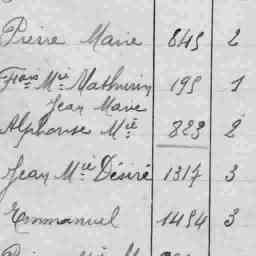 Pierre Marie 845 2
Frois Mie Mathurin 195 1
Jean Marie
Alphonse Mie 823 2
Jean Mie Désiré 1317 3
Emmanuel 1494 3